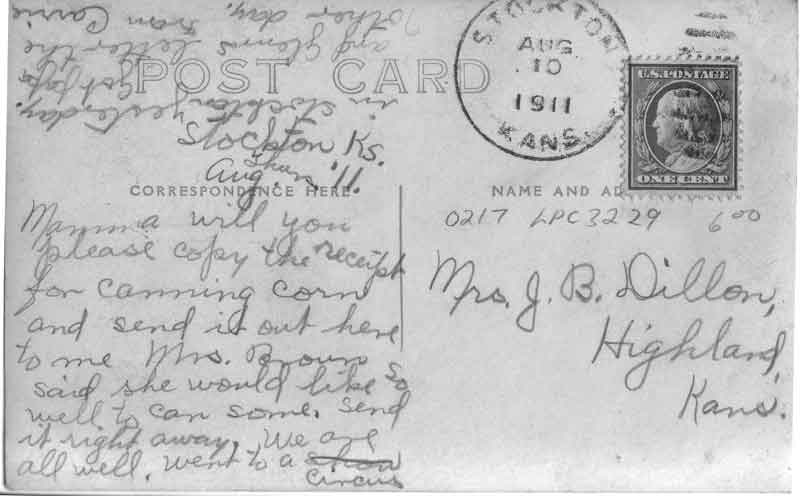 POST CARD
STOCKTON
AUG
10
1911
KANS.
U.S. POSTAGE
ONE CENT
Stockton Ks.
Thurs.
Aug. '11.
CORRESPONDENCE HERE
Mamma will you
please copy the receipt
for canning corn
and send it out here
to me Mrs. Brown
said she would like so
well to can some. Send
it right away. We are
all well. Went to a show
circus
in stockton yesterday.
Got papa
and Glenns letter the
other day, from Carrie
NAME AND AD
0217 LPC3229 6.00
Mrs. J. B. Dillon,
Highland,
Kans.